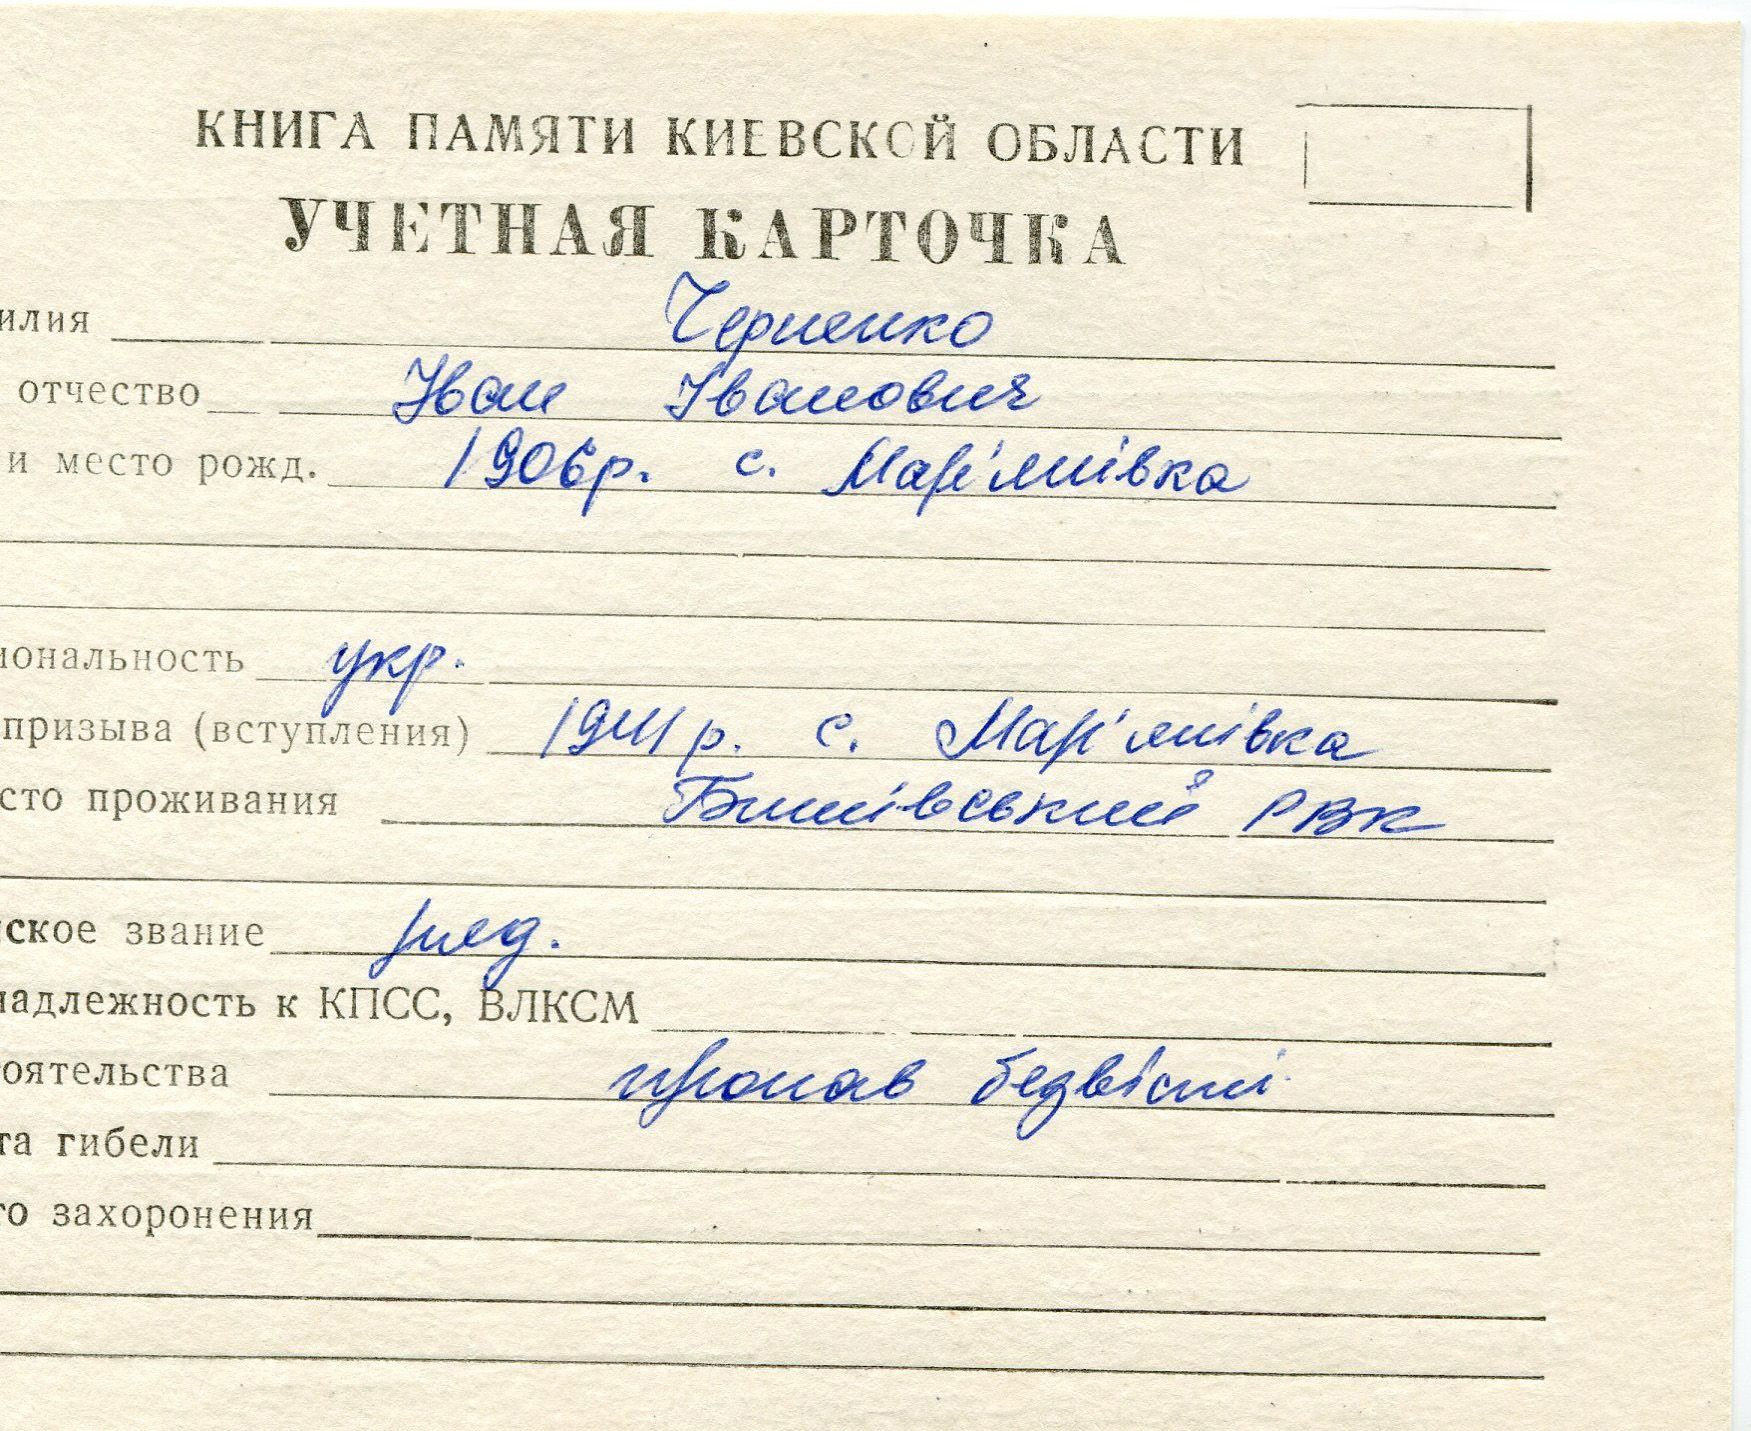 КНИГА ПАМЯТИ КИЕВСКОЙ ОБЛАСТИ
УЧЕТНАЯ КАРТОЧКА
илия Черненко
отчество Іван Іванович
и место рожд. 1906р. с. Мар'янівка
иональность укр.
призыва (вступления) 1941 р. с. Мар'янівка
сто проживания РВК
ское звание ряд.
надлежность к КПСС, ВЛКСМ
оятельства пропав безвісті
та гибели
то захоронения